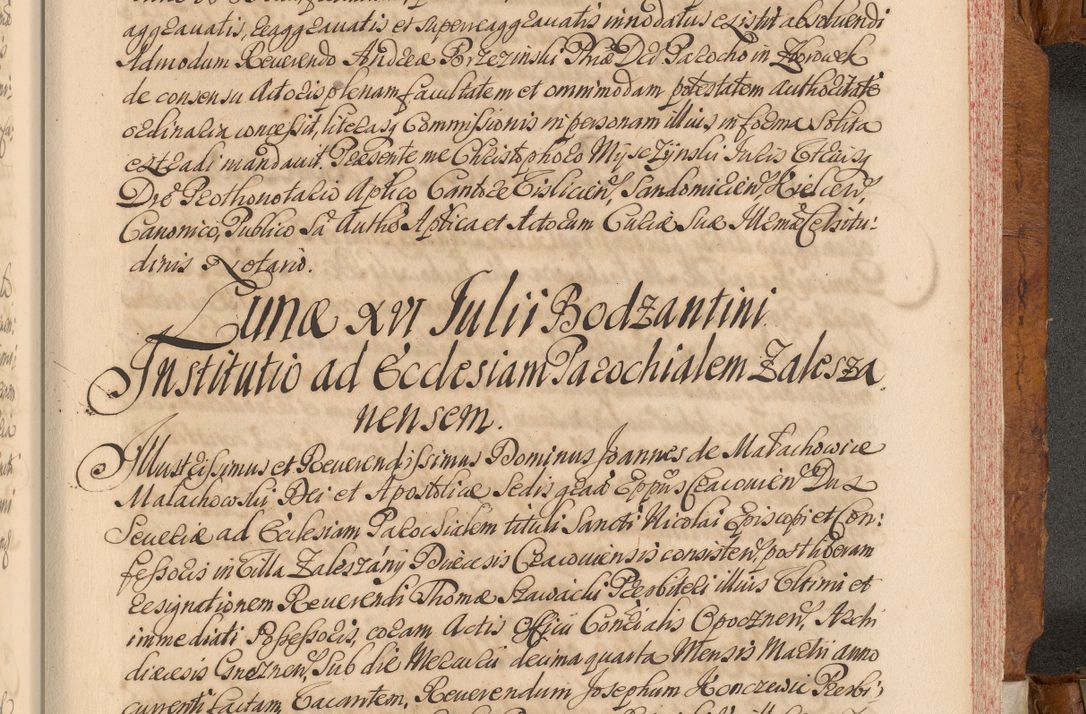 aggravatis, reaggravatis et superreaggravatis innodatus existit absoluendi
Admodum Reuerendo Andreæ Brzezinski Præ Dco Parocho in
de consensu Actoris plenam facultatem et omnimodam potestatem Authoritate
ordinaria concessit, literasq Commissionis in personam illius in forma solita
extradi mandauit. Præsente me Christophoro Juris Utriusq
Dre Prothonotario Aplico Cantore Sandomirien, Kielcen,
Canonico, Publico Sa Autho Aplica et Actorum Curiæ Suæ Illmæ Celsitu:
dinis Notario.
Lunæ XVI Iulii Bodzantini
Institutio ad Ecclesiam Parochialem Zalesza
nensem.
Illustrissimus et Reuerendissimus Dominus Joannes de Małachowice
Małachowski, Dei et Apostolicæ Sedis gratia Eppus Cracouien Dux
Seueriæ ad Ecclesiam Parochialem tituli Sancti Nicolai Episcopi et Con:
fessoris in Villa Zaleszány Diæcesis Cracouiensis consisten, post liberam
resignationem Reuerendi Thomæ Presbiteri illius Ultimi et
immediati Possessoris, coram Actis Officii Opocznen, Archi
diæcesis Gneznen, Sub die Mercurii decima quarta Mensis Martii anno
currenti factam, Vacantem, Reuerendum Josephum Konczewic Presbi: